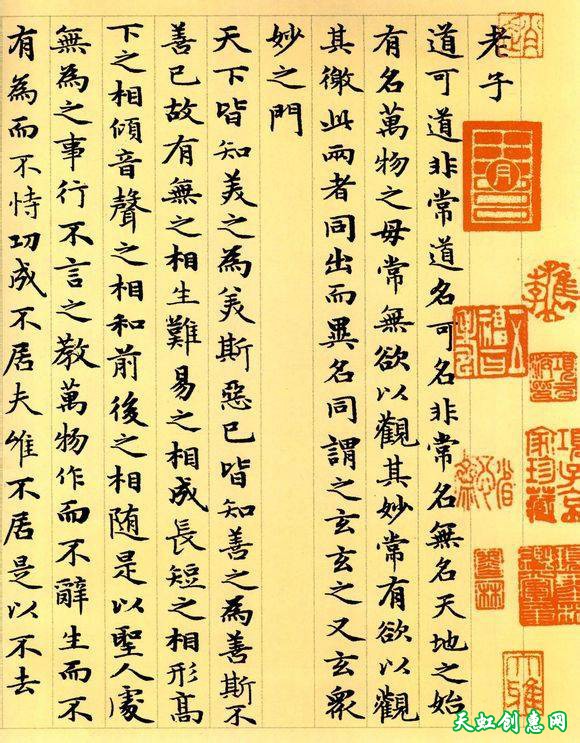 老子
道可道非常道名可名非常名無名天地之始
有名萬物之母常無欲以觀其妙常有欲以觀
其徼此兩者同出而異名同謂之玄玄之又玄衆
妙之門
天下皆知美之為美斯惡已皆知善之為善斯不
善已故有無之相生難易之相成長短之相形高
下之相傾音聲之相和前後之相随是以聖人處
無為之事行不言之教萬物作而不辭生而不
有為而不恃功成不居夫唯不居是以不去
項子京
家珍藏
天虹创惠网